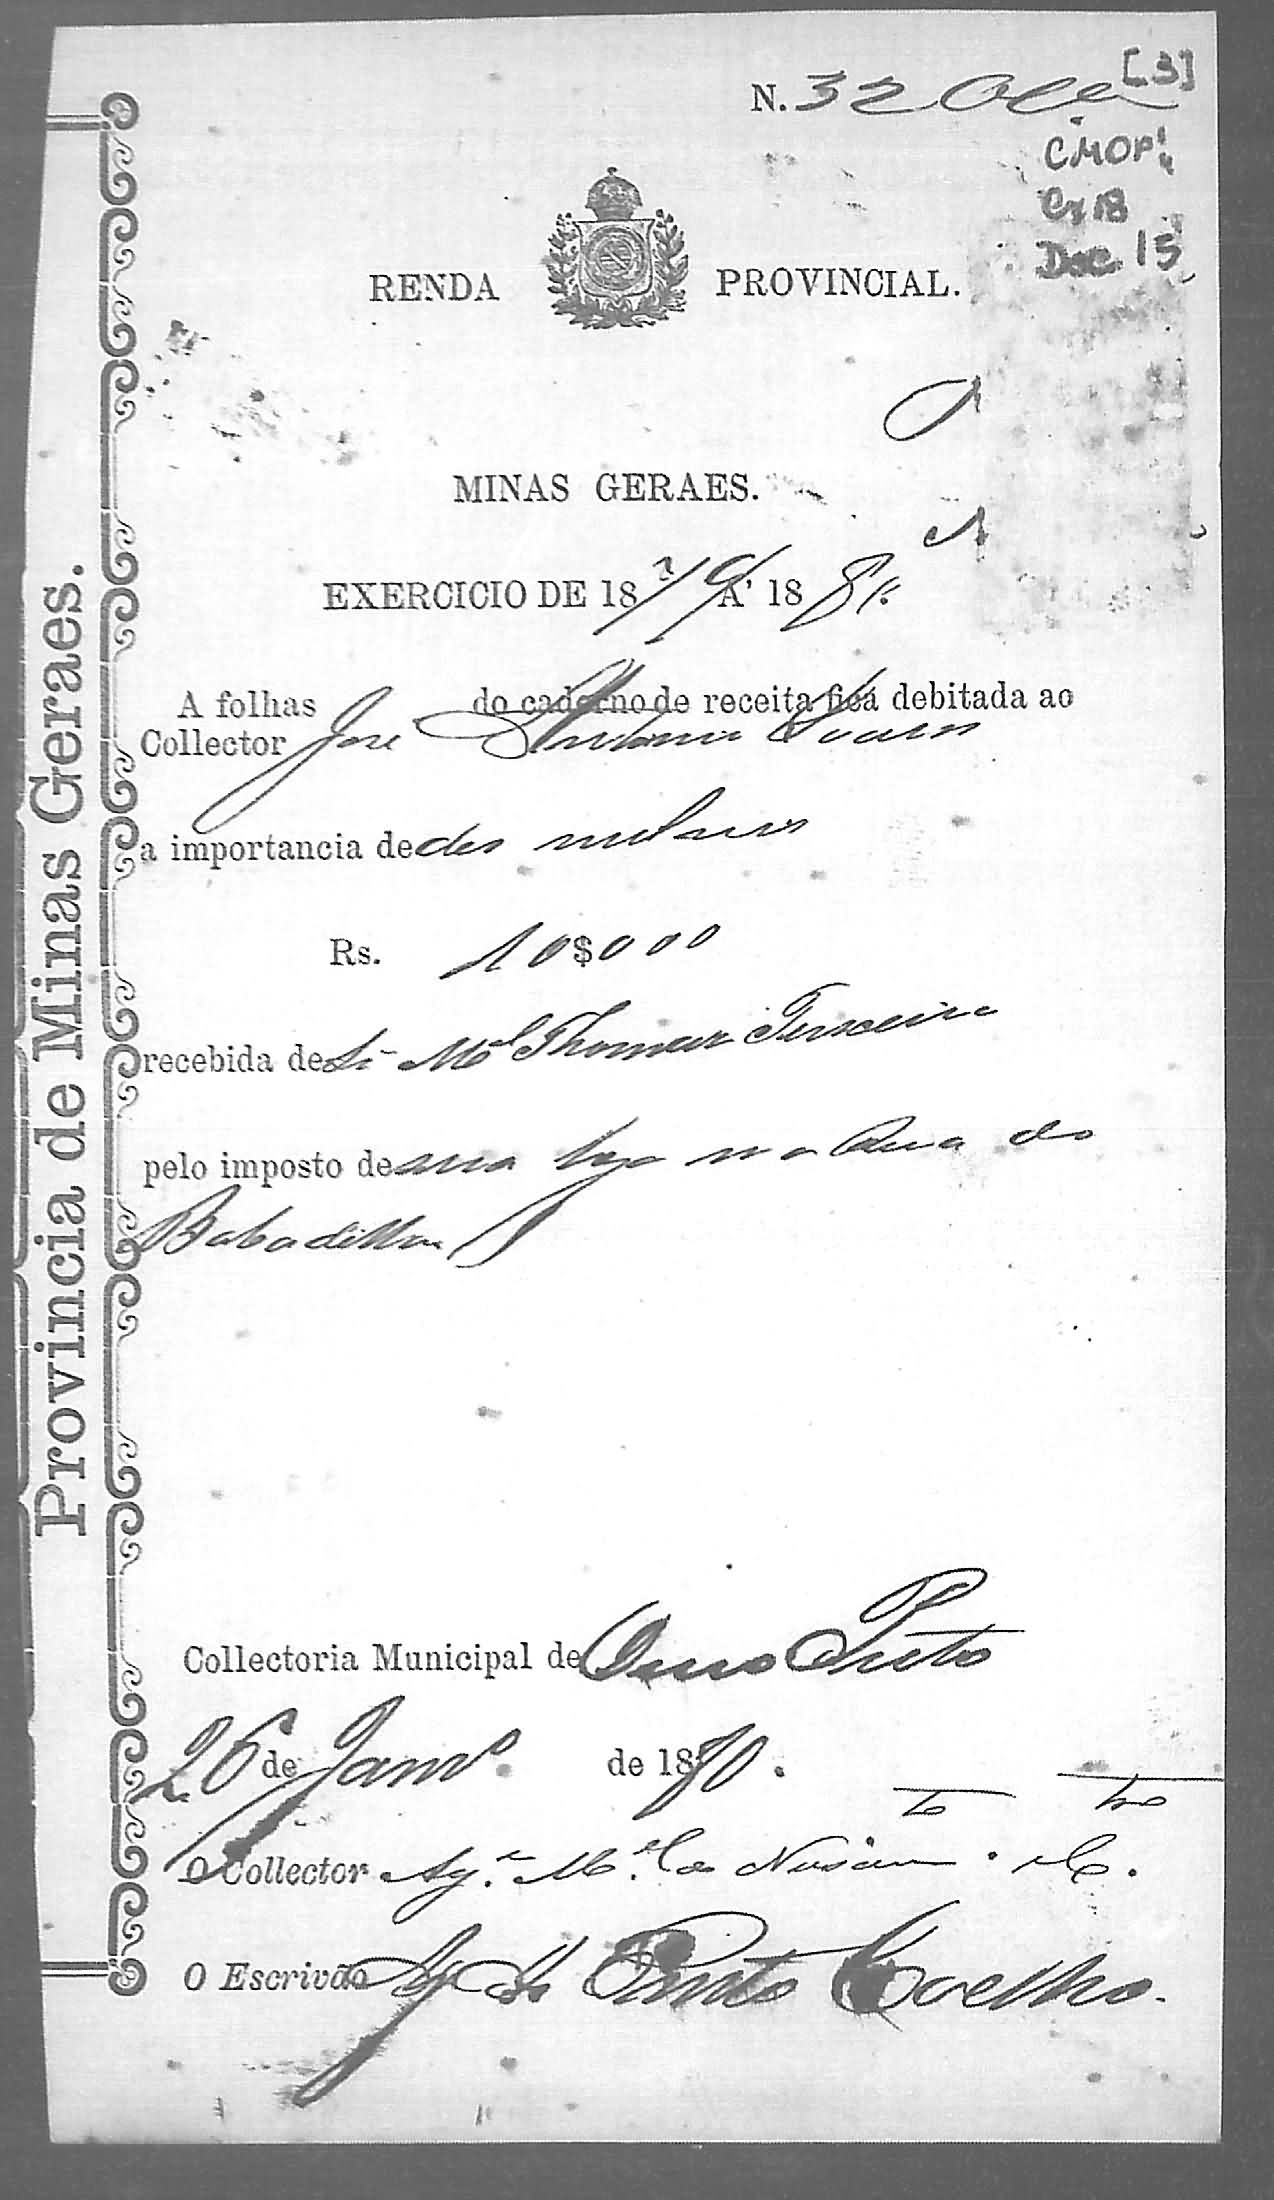 [3]
N. 32
CMOP
Cx 18
Doc 15
RENDA PROVINCIAL.
MINAS GERAES.
EXERCICIO DE 1879 A' 188
A folhas do caderno de receita fica debitada ao
Collector José Antonio Soares
a importancia de des mil reis
Rs. 10$000
recebida de Sr. Mel Thomaz Teixeira
pelo imposto de sua loja na Rua do
Babadilla
Collectoria Municipal de Ouro Preto
26 de Janro. de 18
O Collector
O Escrivão Pinto Coelho.
Provincia de Minas Geraes.